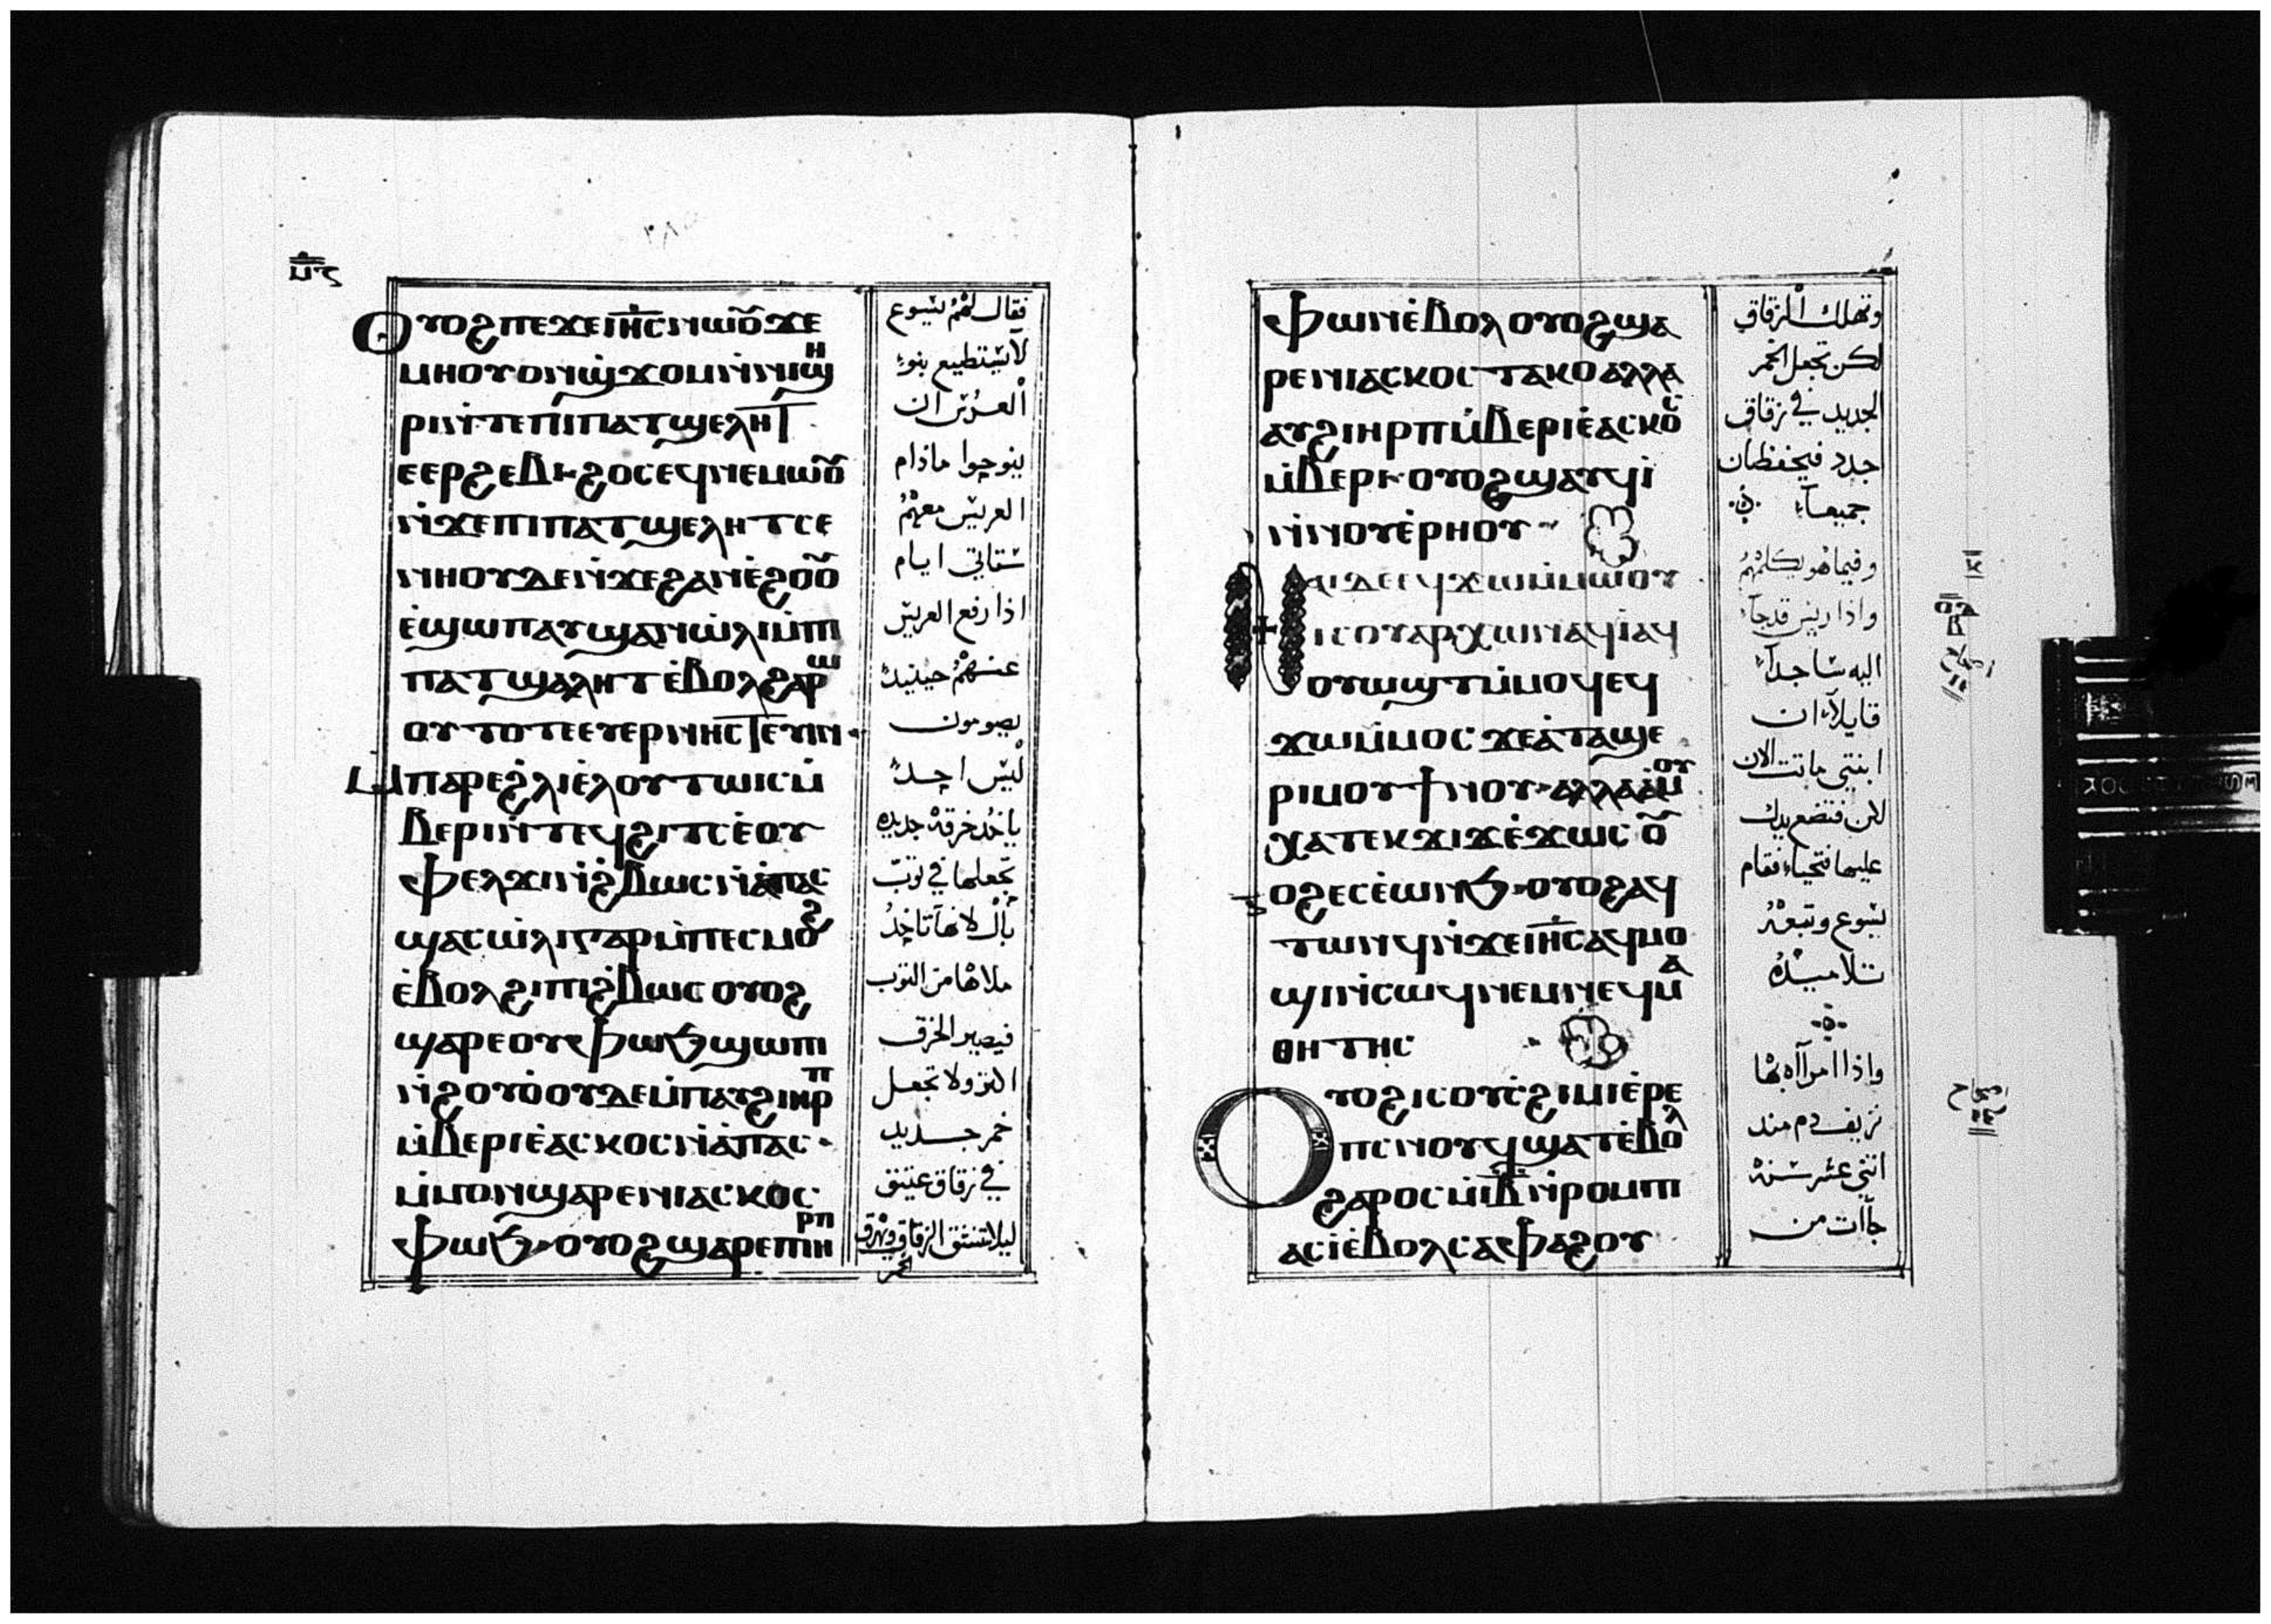 ⲙ̅ⲋ̅
ⲟⲩⲟϩ ⲡⲉϫⲉ ⲓⲏ̅ⲥ̅ ⲛⲱⲟⲩ ϫⲉ
ⲙⲏ ⲟⲩⲟⲛ ϣ̀ϫⲟⲙ ⲛ̀ⲛⲓϣⲏ
ⲣⲓ ⲛ̀ⲧⲉ ⲡⲓⲡⲁⲧϣⲉⲗⲏϯ
ⲉⲉⲣϩⲉⲃⲓ ϩⲟⲥ ⲉϥⲛⲉⲙⲱⲟⲩ
ⲛ̀ϫⲉ ⲡⲓⲡⲁⲧϣⲉⲗⲏⲧ ⲥⲉ
ⲛⲏⲟⲩ ⲇⲉ ⲛ̀ϫⲉ ϩⲁⲛⲉ̀ϩⲟⲟⲩ
ⲉ̀ϣⲱⲡ ⲁⲩϣⲁⲛⲱ̀ⲗⲓ ⲙ̀ⲡⲓ
ⲡⲁⲧϣⲁⲗⲏⲧ ⲉ̀ⲃⲟⲗϩⲁⲣⲱ
ⲟⲩ ⲧⲟⲧⲉ ⲉⲩⲉⲣⲛⲏⲥⲧⲉⲩⲓⲛ
ⲙⲡⲁⲣⲉ ϩ̀ⲗⲓ ⲉ̀ⲗ ⲟⲩⲧⲱⲓⲥ ⲙ̀
ⲃⲉⲣⲓ ⲛ̀ⲧⲉϥϩⲓⲧⲥ ⲉ̀ⲟⲩ
ⲫⲉⲗϫⲓ ⲛ̀ϩ̀ⲃⲱⲥ ⲛ̀ⲁⲡⲁⲥ
ϣⲁⲥⲱ̀ⲗⲓ ⲅⲁⲣ ⲙ̀ⲡⲉⲥⲙⲟϩ
ⲉ̀ⲃⲟⲗϩⲓ ⲡⲓϩ̀ⲃⲱⲥ ⲟⲩⲟϩ
ϣⲁⲣⲉ ⲟⲩⲫⲱϧ ϣⲱⲡⲓ
ⲛ̀ϩⲟⲩⲟ̀ ⲟⲩⲇⲉ ⲙ̀ⲡⲁⲩϩⲓ ⲏⲣⲡ
ⲙ̀ⲃⲉⲣⲓ ⲉ̀ⲁⲥⲕⲟⲥ ⲛ̀ⲁ̀ⲡⲁⲥ
ⲙ̀ⲙⲟⲛ ϣⲁⲣⲉ ⲛⲓⲁⲥⲕⲟⲥ
ⲫⲱϧ ⲟⲩⲟϩ ϣⲁⲣⲉ ⲡⲓⲏⲣⲡ
فقال لهم يسوع
لا يستطيع بنوا
العرس ان
ينوحوا ماذام
العريس معهم
ستاتي ايام
اذا رفع العريس
عنهم حينيذ
يصومون
ليس احد
ياخد خرقه جديده
تجعلها في توب
بال لانها تاخد
ملاها من التوب
فيصير الخرق
اكتر ولا تجعل
خمر جديد
في زقاق عتيق
ليلا تنشق الزقاق وتهرق
الخمر
ⲫⲱⲛ ⲉ̀ⲃⲟⲗ ⲟⲩⲟϩ ϣⲁ
ⲣⲉ ⲛⲓⲁⲥⲕⲟⲥ ⲧⲁⲕⲟ ⲁⲗⲗⲁ
ⲁⲩϩⲓ ⲏⲣⲡ ⲙ̀ⲃⲉⲣⲓ ⲉ̀ⲁⲥⲕⲟⲥ
ⲙ̀ⲃⲉⲣⲓ ⲟⲩⲟϩ ϣⲁⲩϥⲓ
ⲛ̀ⲛⲟⲩⲉ̀ⲣⲏⲟⲩ
ⲛⲁⲓ ⲇⲉ ⲉϥϫⲱ ⲙ̀ⲙⲱⲟⲩ
ⲓⲥ ⲟⲩⲁⲣⲭⲱⲛ ⲁϥⲓ̀ ⲁϥ
ⲟⲩⲱϣⲧ ⲙ̀ⲙⲟϥ ⲉϥ
ϫⲱ ⲙ̀ⲙⲟⲥ ϫⲉ ⲁ̀ ⲧⲁϣⲉ
ⲣⲓ ⲙⲟⲩ ϯⲛⲟⲩ ⲁⲗⲗⲁ ⲁ̀ⲙⲟⲩ
ⲭⲁ ⲧⲉⲕϫⲓϫ ⲉ̀ϫⲱⲥ ⲟⲩ
ⲟϩ ⲉⲥⲉ̀ⲱⲛϧ ⲟⲩⲟϩ ⲁϥ
ⲧⲱⲛϥ ⲛ̀ϫⲉ ⲓⲏ̅ⲥ̅ ⲁϥⲙⲟ
ϣⲓ ⲛ̀ⲥⲱϥ ⲛⲉⲙ ⲛⲉϥⲙⲁ
ⲑⲏⲧⲏⲥ
ⲟⲩⲟϩ ⲓⲥ ⲟⲩⲥ̀ϩⲓⲙⲓ ⲉ̀ⲣⲉ
ⲡⲥⲛⲟϥ ϣⲁⲧ ⲉ̀ⲃⲟⲗ
ϩⲁⲣⲟⲥ ⲙ̀ⲓ̅ⲃ̅ ⲛ̀ⲣⲟⲙⲡⲓ
ⲁⲥⲓ̀ ⲉ̀ⲃⲟⲗⲥⲁⲫⲁϩⲟⲩ
وتهلك الزقاق
لكن تجعل الخمر
الجديد في زقاق
جدد فيحفظان
جميعاً
وفيما هو يكلمهم
واذا ريس قد جآ
اليه ساجداً
قايلاً ان
ابنتي ماتت الان
لكن فتضع يدك
عليها فتحيا فقام
يسوع وتبعه
تلاميذه
واذا امرآاه بها
نزيف دم مند
اتني عشر سنه
جآات من
ⲟ̅ⲇ̅
ⲃ̅